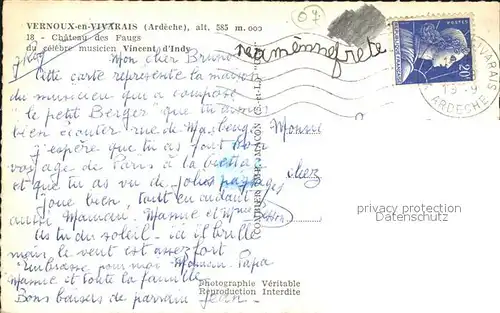 VERNOUX-en-VIVARAIS (Ardèche), alt. 585 m.
18 - Château des Faugs
du célèbre musicien Vincent d'Indy
07
Mon cher Bruno
Cette carte représente la maison
du musicien qui a composé
"le petit Berger" que tu aimes
bien écouter rue de Maubeuge
J'espère que tu as fait bon
voyage de Paris à la
et que tu as vu de jolis paysages
Joue bien, tout en aidant
aussi Maman. Mamie et
As tu du soleil - ici il brille
mais le vent est assez fort
Embrasse pour moi Maman Papa
Mamie et toute la famille
Bons baisers de parrain Jean
Monsieur
chez
POSTES
20F
VIVARAIS
ARDECHE
MACON
privacy protection
Datenschutz
Photographie Véritable
Reproduction Interdite